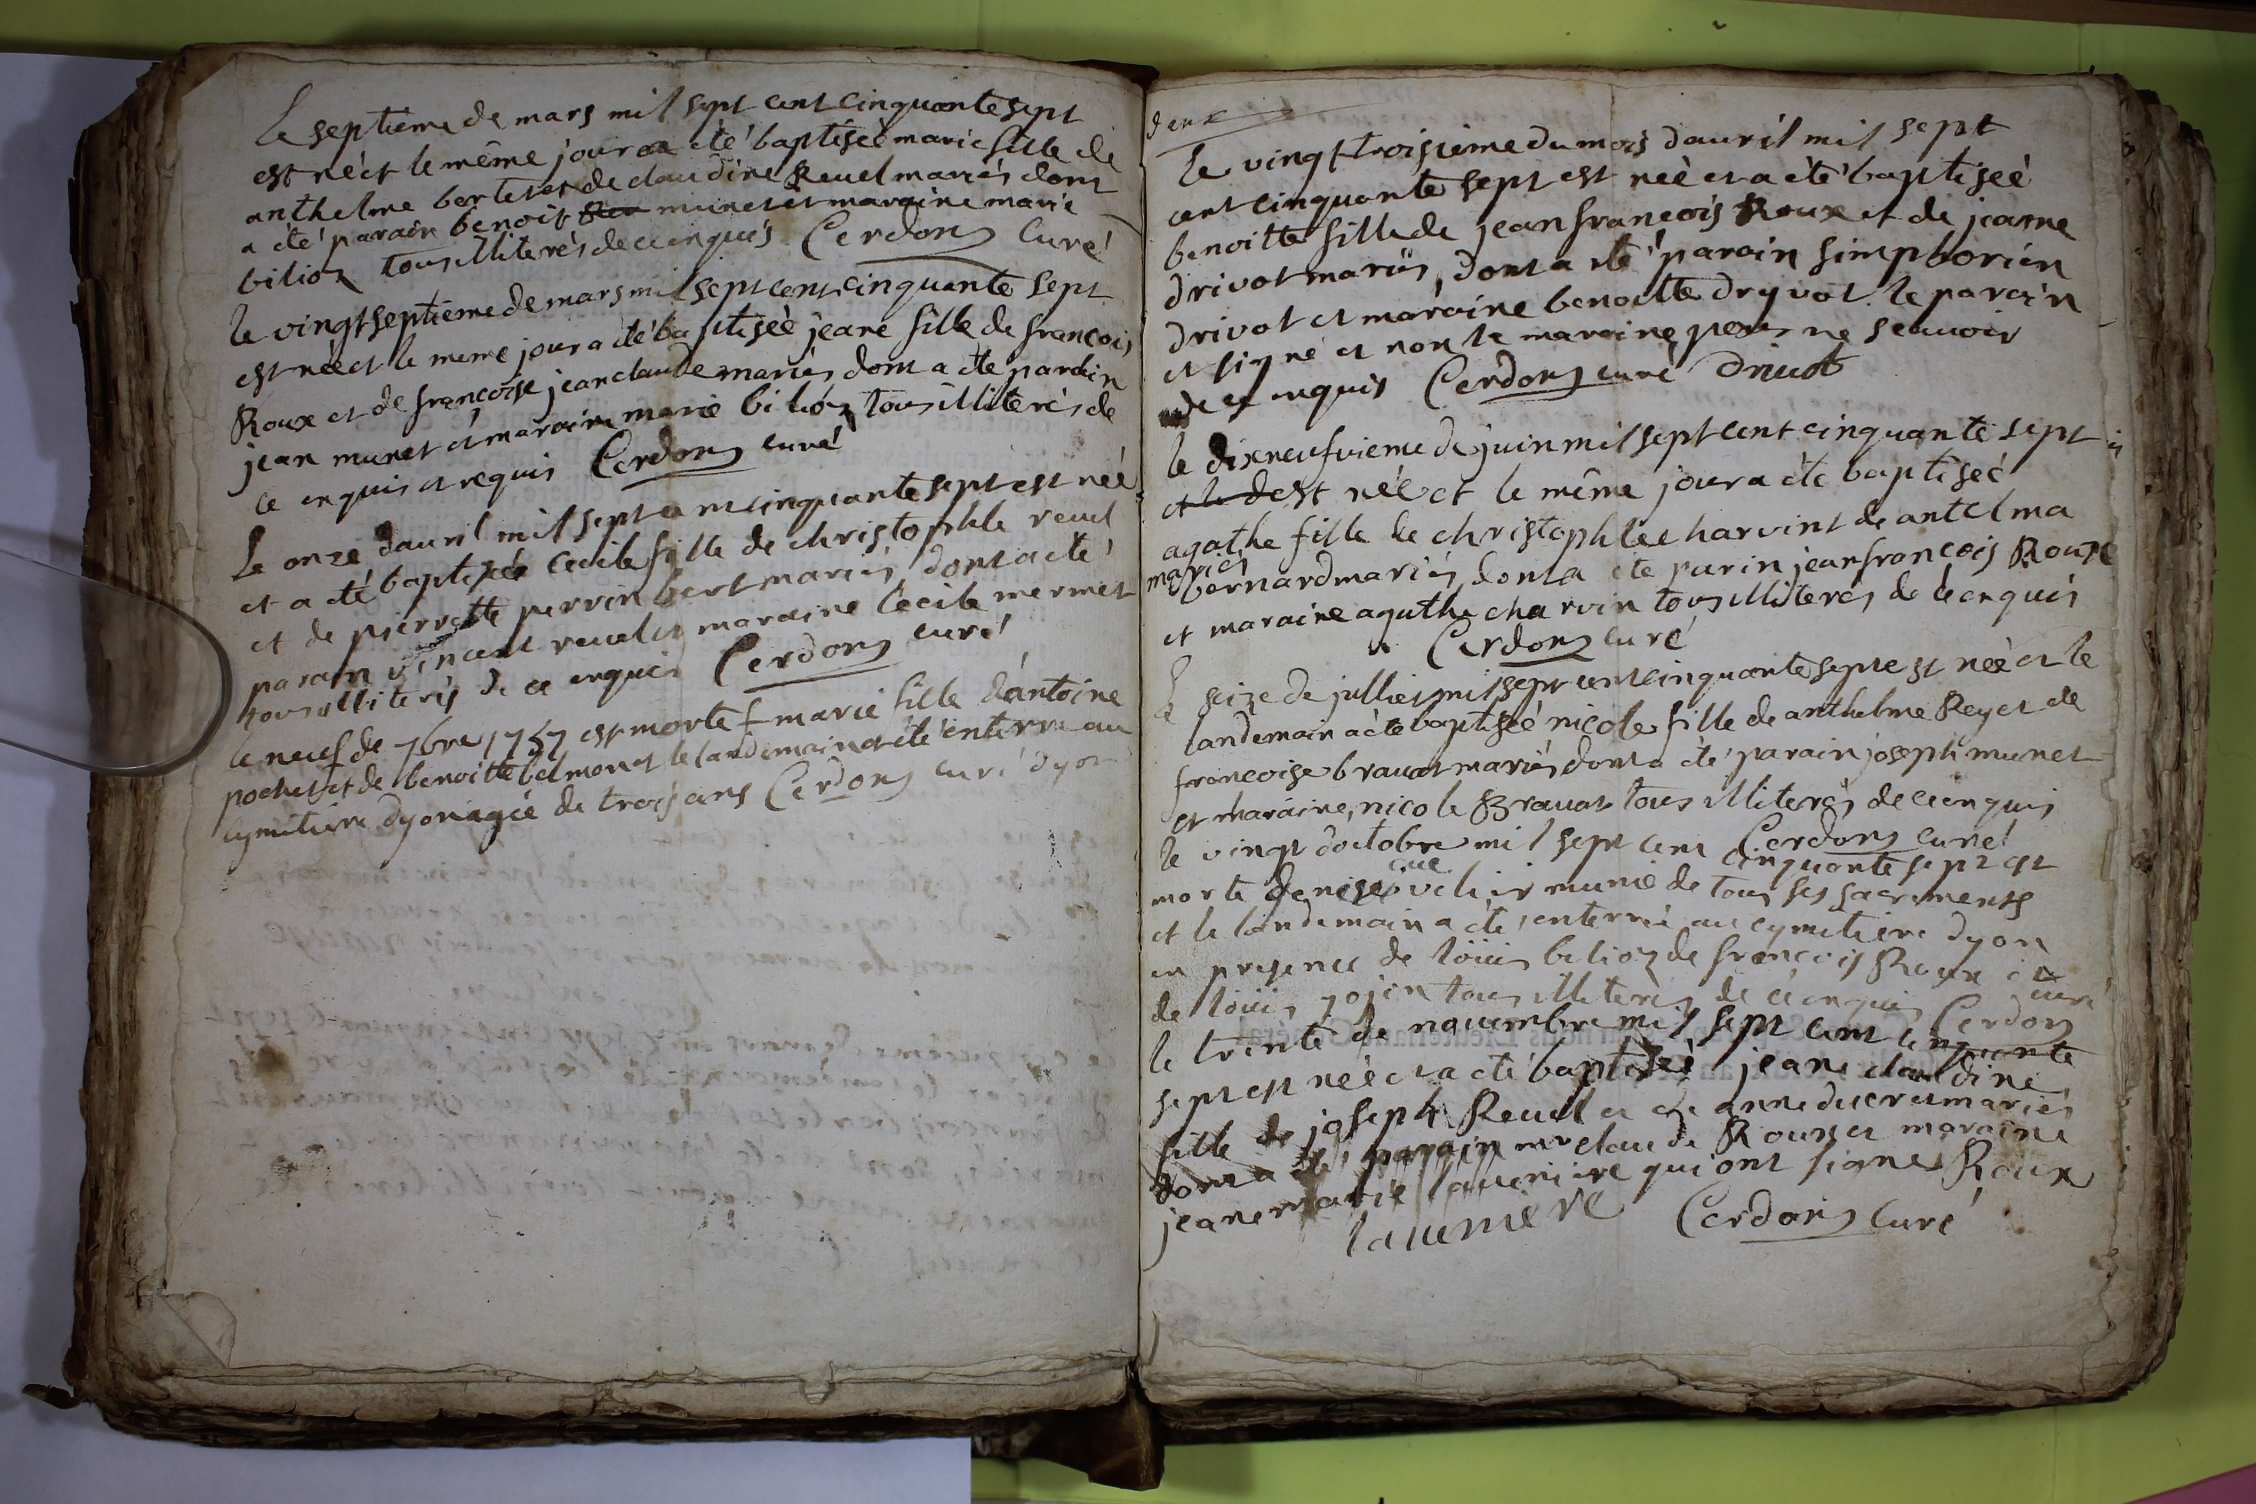 Le septieme de mars mil sept cent cinquante sept
est née et le même jour a été baptiseé marie fille de
anthelme bertet et de claudine Revel mariés dont
a été parain benoit munet et maraine marie
bilioz tous illiterés de ce enquis Cerdon Curé
le vingt septieme de mars mil sept cent cinquante sept
est née et le meme jour a été baptiseé jeane fille de francois
Roux et de francoise jean claude mariés dont a été parain
jean munet et maraine marie bilioz tous illiterés de
ce enquis et requis Cerdon curé
Le onze dauril mil sept cent cinquante sept est née
et a été baptiseé Cecile fille de christophle revel
et de pierrette perrin bert mariés dont a été
parain vincent reuel et maraine Cecile mermet
tous illiterés de ce enquis Cerdon curé
le neuf de 7bre 1757 est morte marie fille d'antoine
pochet et de benoitte belmont et le landemain a été enterré au
cymetiere dyon agée de trois ans Cerdon curé dyon
deux
le vingt troisieme du mois dauril mil sept
cent cinquante sept est neé et a été baptiseé
benoitte fille de jean francois Roux et de jeanne
drivot mariés, dont a été parain simphorien
drivot et maraine benoitte dryvot. le parain
et signé et non le maraine pour ne scauoir
de ce enquis Cerdon curé Driuot
le dix neufvieme de juin mil sept cent cinquante sept
est née et le même jour a été baptiseé
agathe fille de christophle charvin et de antelma
mariés
bernard mariés dont a été parin jean francois Roux
et maraine agathe charvin tous illiterés de ce enquis
Cerdon curé
Le seize de julliet mil sept cent cinquante sept est neé et le
landemain a été baptiseé nicole fille de anthelme Rey et de
francoise bravat mariés dont a été parain joseph munet
et maraine, nicole Bravat tous illiterés de ce enquis
Cerdon curé
le vingt doctobre mil sept cent cinquante sept est
morte denise munie de tous ses sacrements
et le landemain a été enterré au cymetiere dyon
en presence de loüis bilioz de francois Roux et
de loüis tous illiterés de ce enquis Cerdon curé
le trente de nouembre mil sept cent cinquante
sept est neé et a été baptiseé jeane claudine
fille de joseph Reuel et de anne ducret mariés
dont a été parain mr claude Roux et maraine
jeane marie lauerniere qui ont signes Roux
lauerniere Cerdon curé